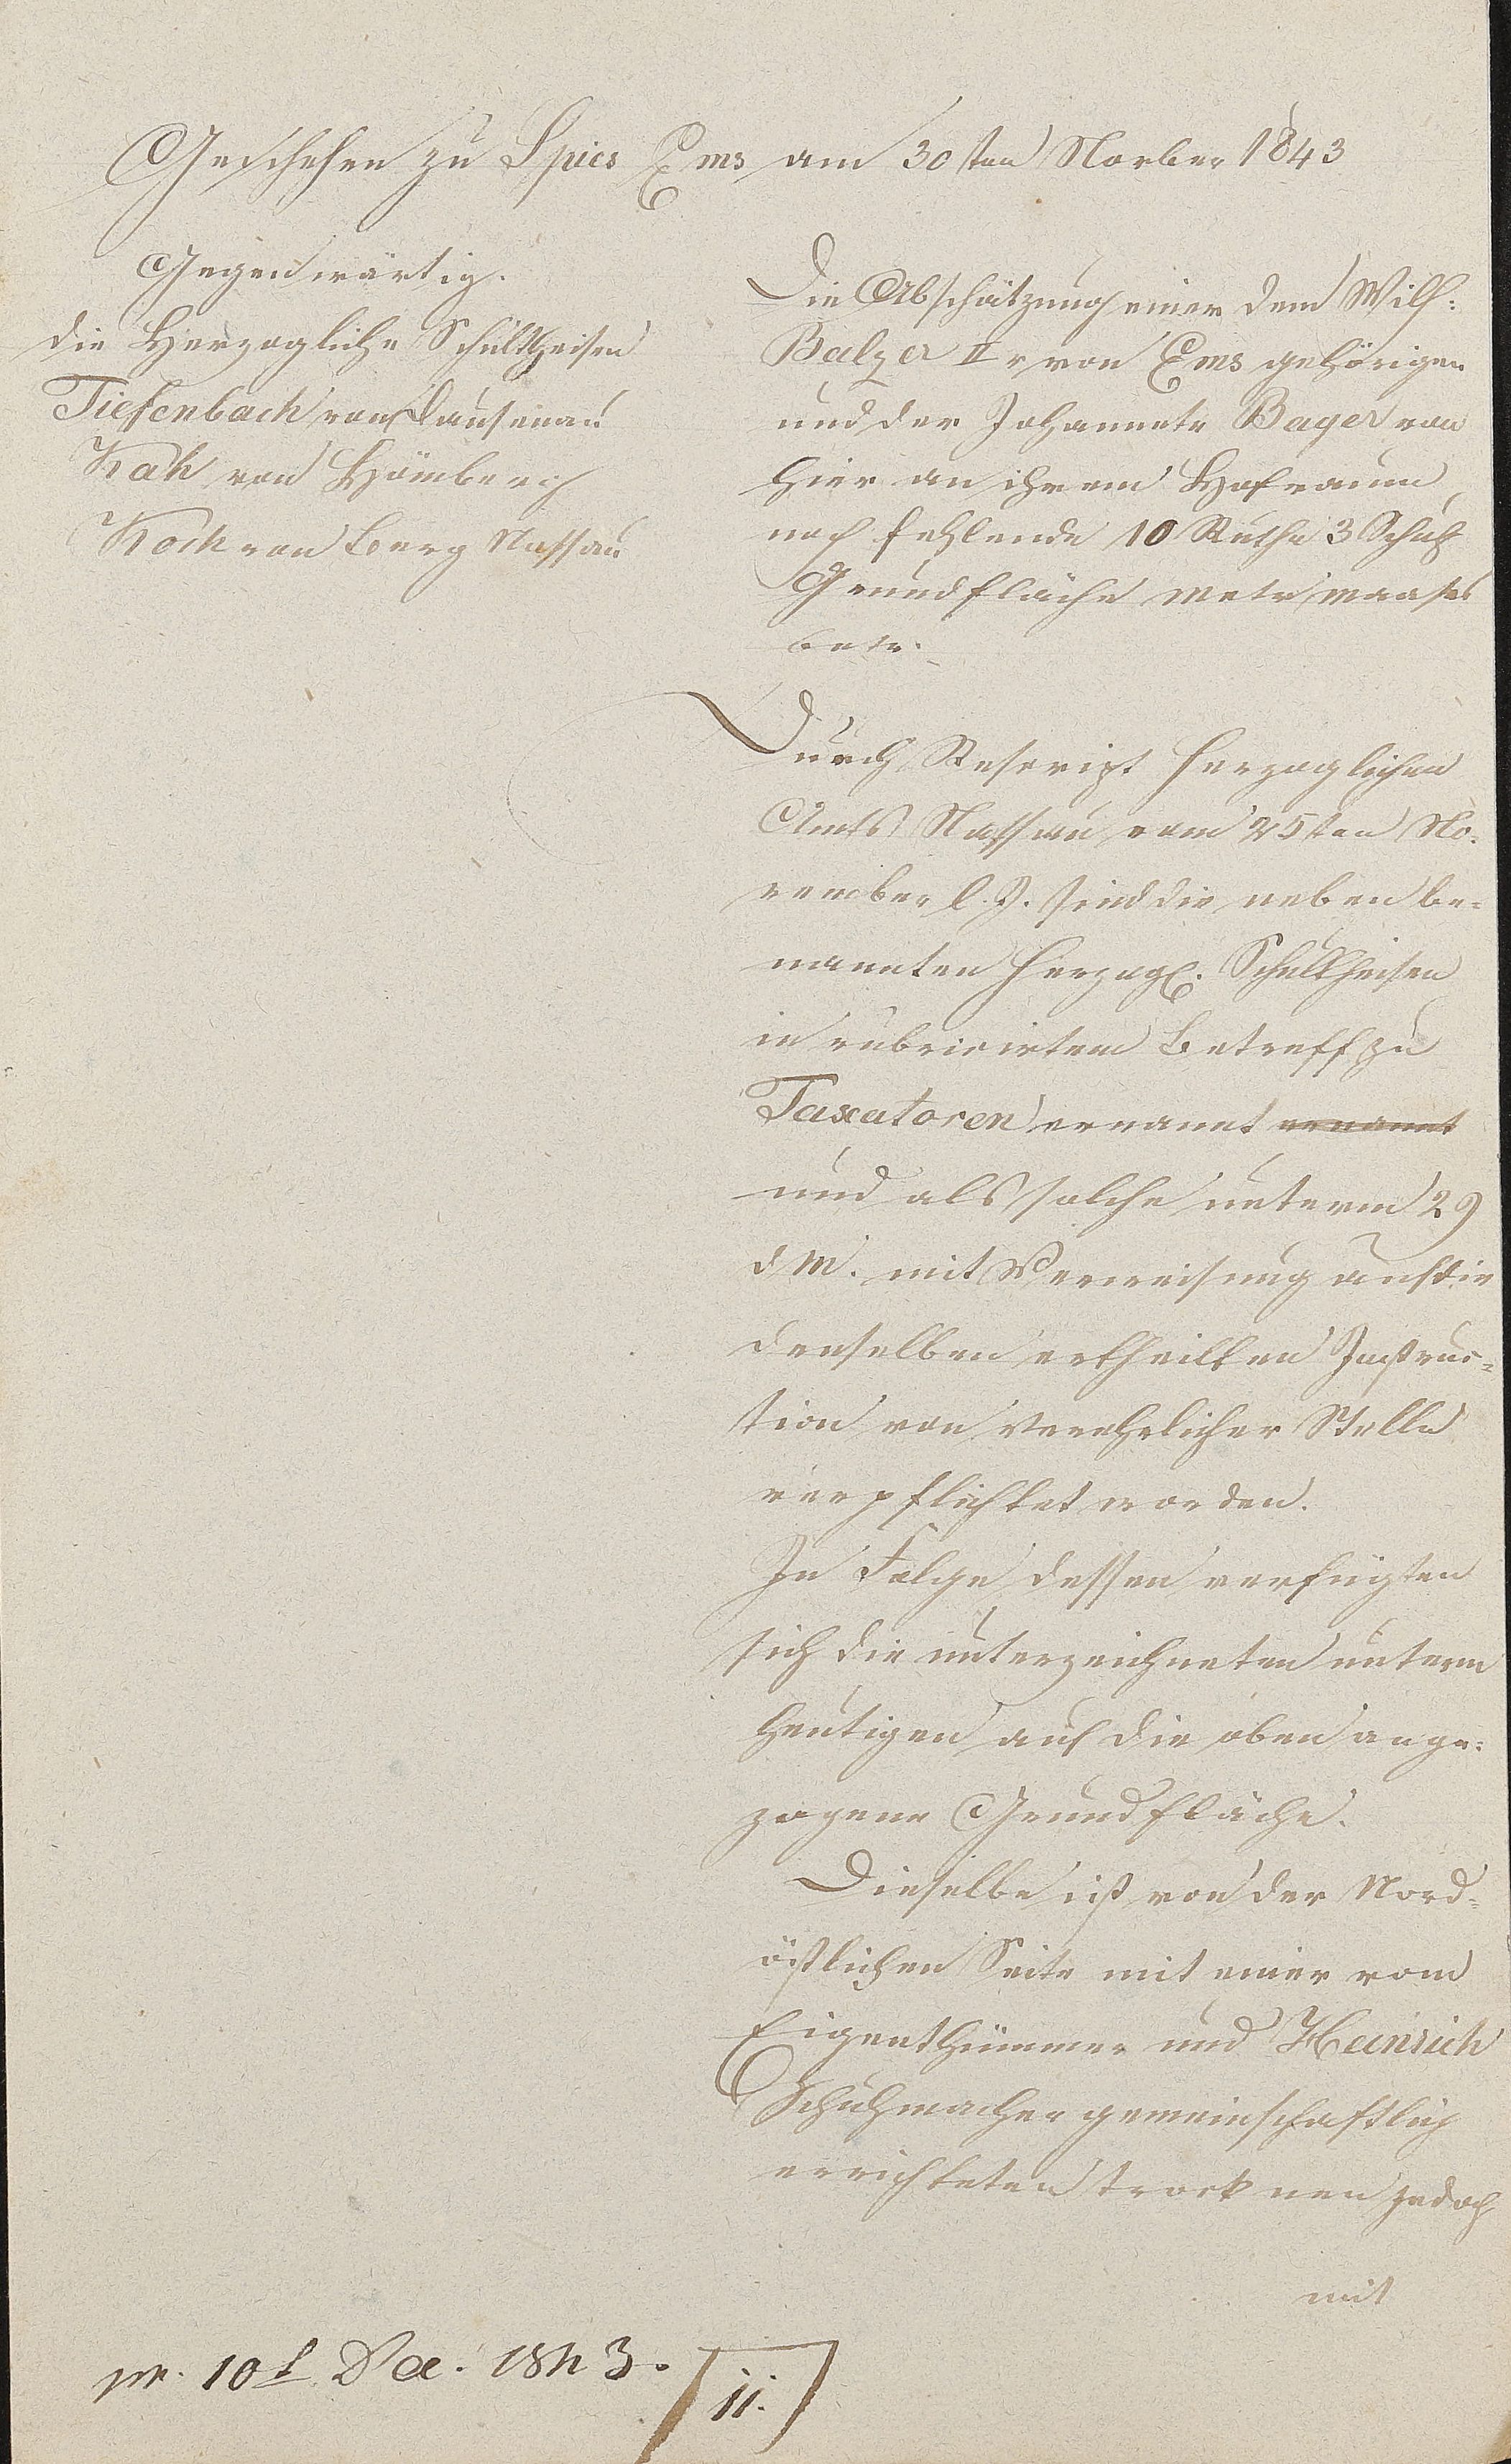 Geschehen zu Spies Ems am 30sten Novber 1843
Gegenwärtig.
die Herzogliche Schultheisen
Tiefenbach von Dausenau
Kah von Hömberg
Koch von Berg Nassau
Die Abschätzung einer dem Wilh:
Balzer IIr von Ems gehörigen
und der Johannete Bayer von
hier an ihrem Hofraum
noch fehlende 10 Ruthe 3 Schuh
Grundfläche Metr maases
betr.
Durch Rescript Herzoglichen
Amts Nassau vom 25sten No-
vember l. J. sind die nebenbe-
nannten Herzogl. Schultheisen
in rubricirtem Betreff zu
Taxatoren ernannt ernannt
und als solche unterm 29
d M. mit Verweisung auf die
denselben ertheilten Instruc-
tion von verehrlicher Stelle
verpflichtet worden.
In Folge dessen verfügten
sich die unterzeichneten unterm
heutigen auf die oben ange-
zogene Grundfläche.
Dieselbe ist von der Nord-
östlichen Seite mit einer vom
Eigenthümmer und Heinrich
Schuhmacher gemeinschaftlich
errichteten trocknen jedoch
mit
pr. 10t Dec. 1843.
11.